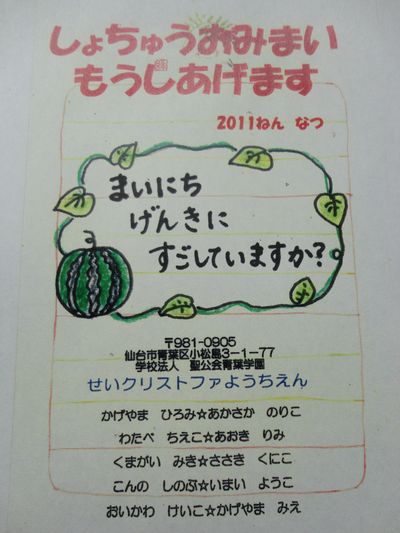 しょちゅうおみまい
もうしあげます
2011ねん なつ
まいにち
げんきに
すごしていますか?
〒981-0905
仙台市青葉区小松島3-1-77
学校法人 聖公会青葉学園
せいクリストファようちえん
かげやま ひろみ☆あかさか のりこ
わたべ ちえこ☆あおき りみ
くまがい みき☆ささき くにこ
こんの しのぶ☆いまい ようこ
おいかわ けいこ☆かげやま みえ